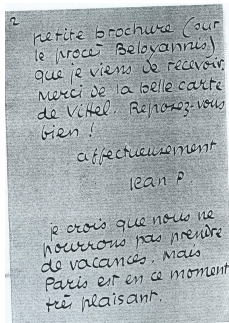 2
petite brochure (sur
le procès Beloyannis)
que je viens de recevoir.
Merci de la belle carte
de Vittel. Reposez-vous
bien !
affectueusement
Jean P.
je crois que nous ne
pourrons pas prendre
de vacances. Mais
Paris est en ce moment
très plaisant.